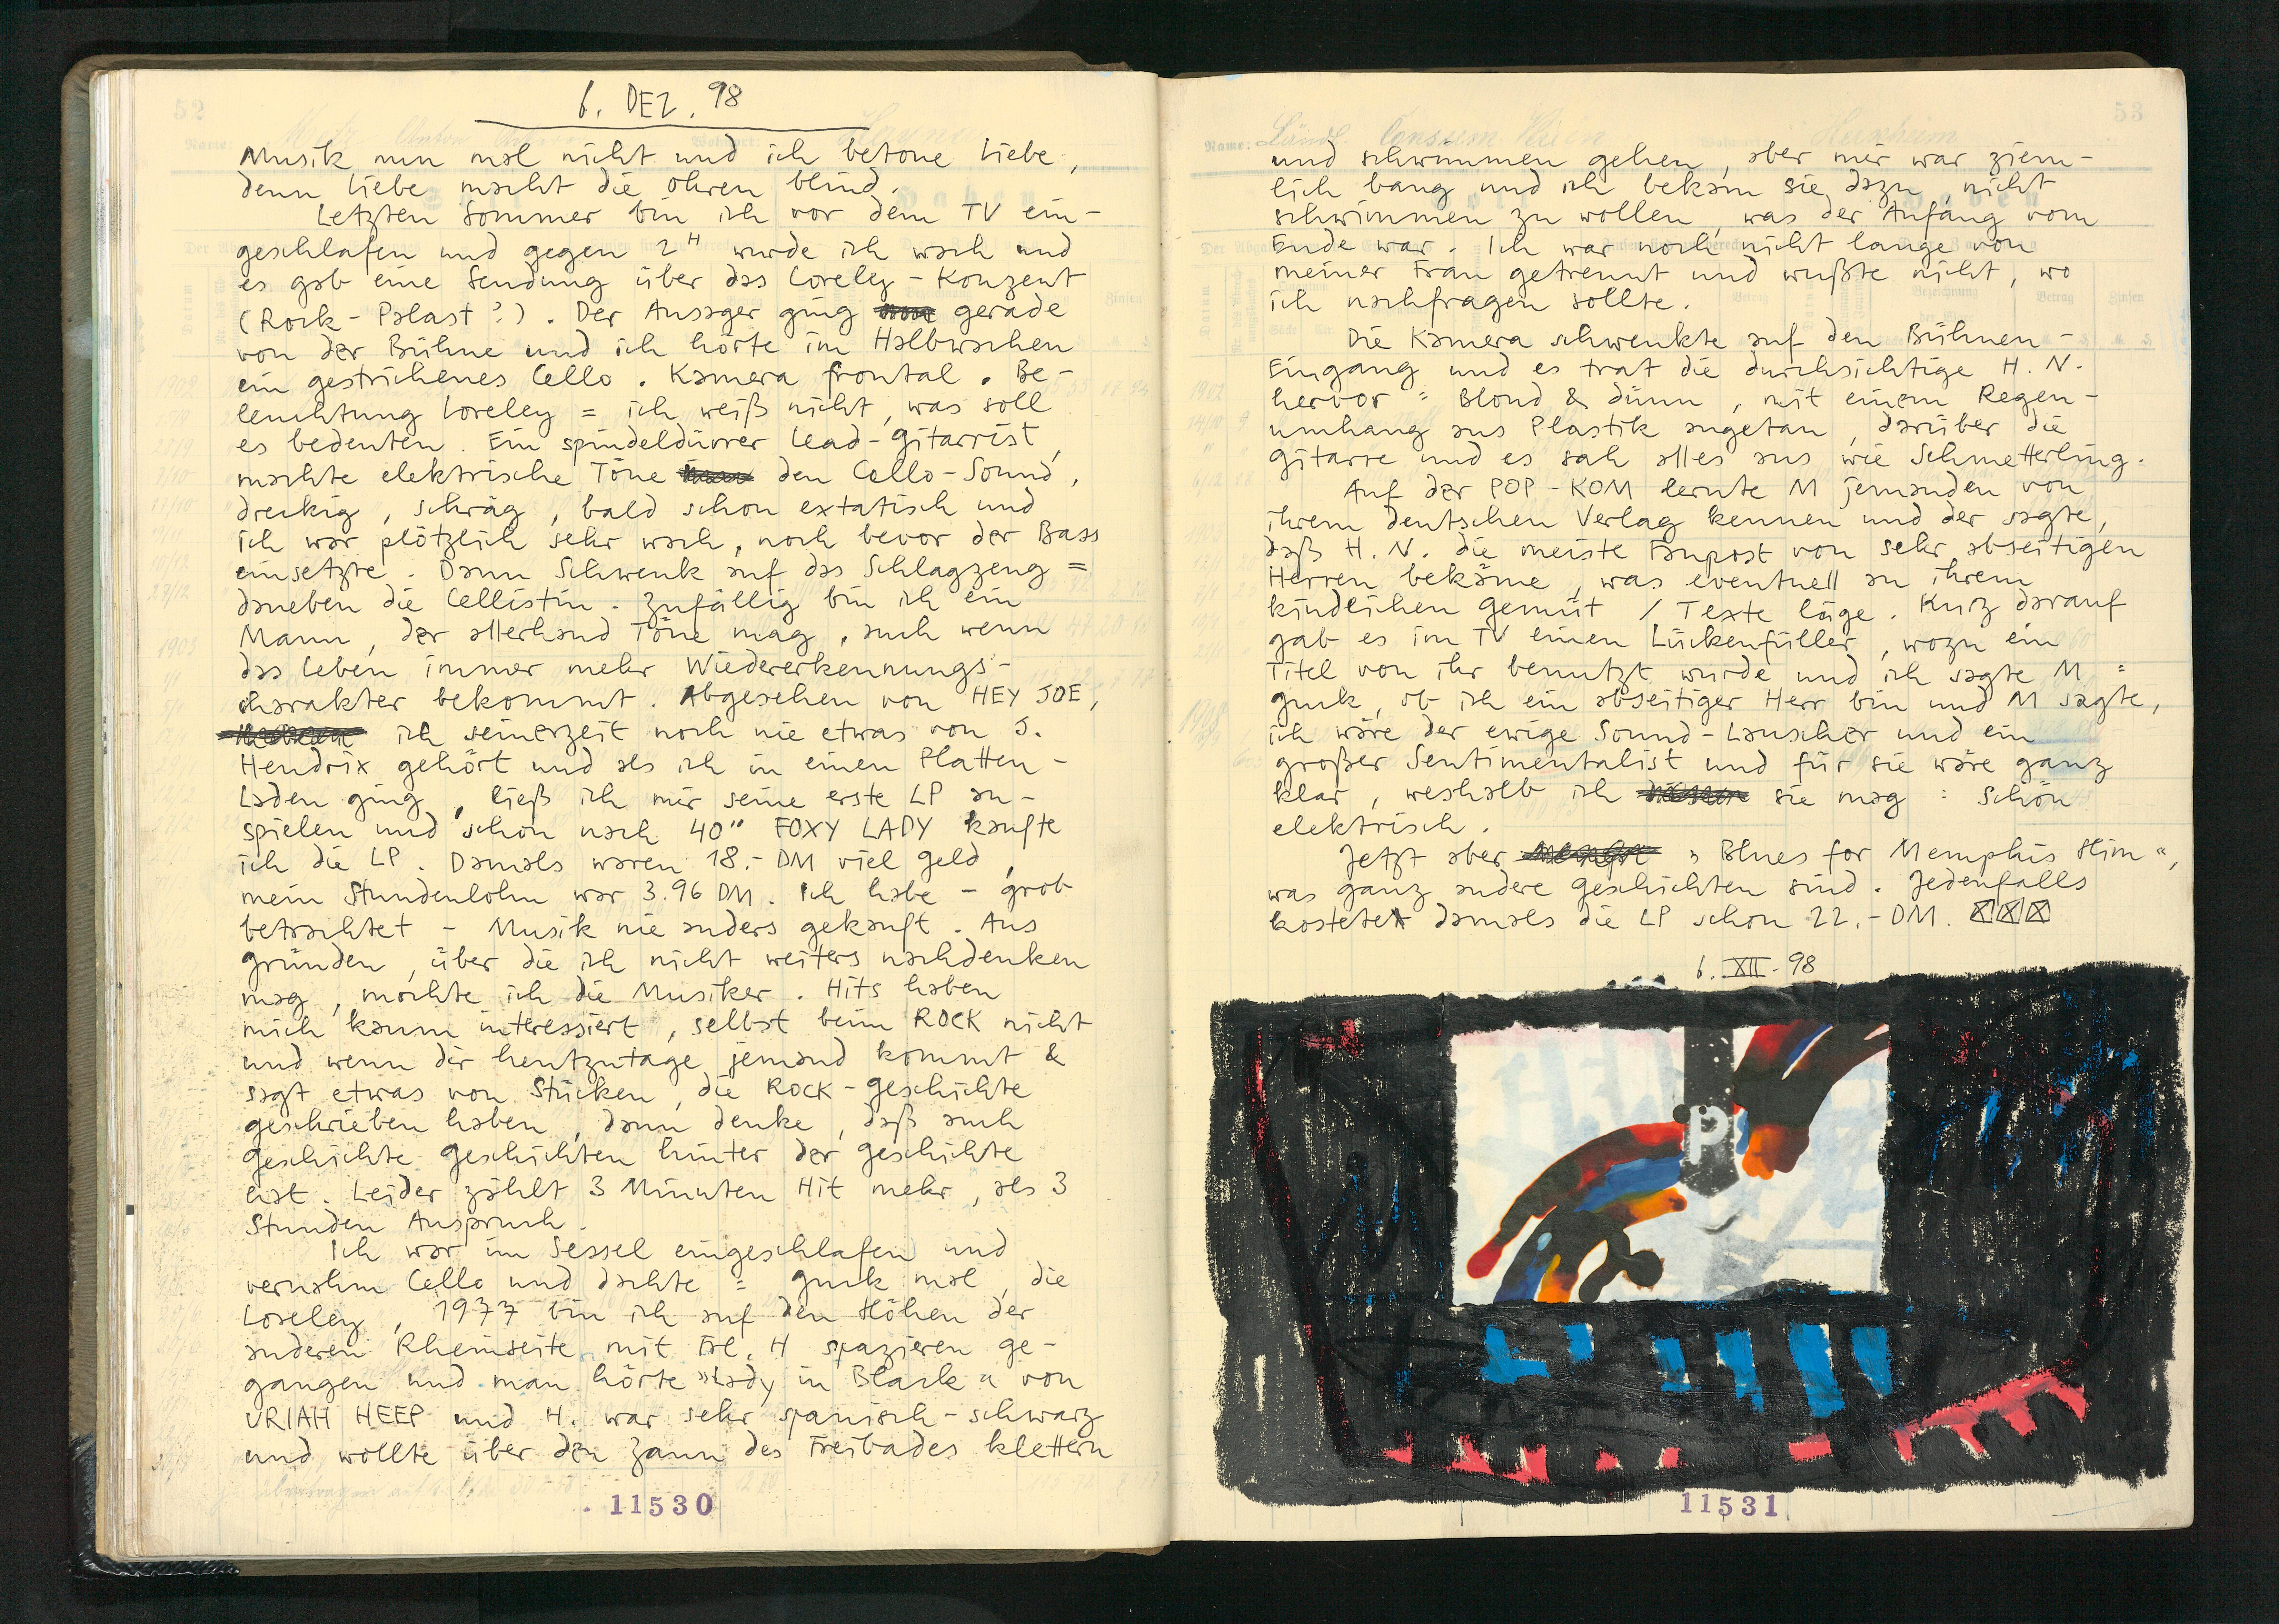 6. DEZ. 98
Musik nun mal nicht und ich betone Liebe,
denn Liebe macht die Ohren blind.
Letzten Sommer bin ich vor dem TV ein-
geschlafen und gegen 2H wurde ich wach und
es gab eine Sendung über das Loreley-Konzert
(Rock-Palast?). Der Ansager ging gerade
von der Bühne und ich hörte im Halbwachen
ein gestrichenes Cello. Kamera frontal. Be-
leuchtung Loreley = ich weiß nicht, was soll
es bedeuten. Ein spindeldürrer Lead-Gitarrist
machte elektrische Töne den Cello-Sound,
dreckig, schräg, bald schon extatisch und
ich war plötzlich sehr wach, noch bevor der Bass
einsetzte. Dann Schwenk auf das Schlagzeug =
daneben die Cellistin. Zufällig bin ich ein
Mann, der allerhand Töne mag, auch wenn
das Leben immer mehr Wiedererkennungs-
charakter bekommt. Abgesehen von HEY JOE,
ich seinerzeit noch nie etwas von J.
Hendrix gehört und als ich in einen Platten-
Laden ging, ließ ich mir seine erste LP an-
spielen und schon nach 40" FOXY LADY kaufte
ich die LP. Damals waren 18.- DM viel Geld,
mein Stundenlohn war 3.96 DM. Ich habe - grob
betrachtet - Musik nie anders gekauft. Aus
Gründen, über die ich nicht weiters nachdenken
mag, mochte ich die Musiker. Hits haben
mich kaum interessiert, selbst beim ROCK nicht
und wenn dir heutzutage jemand kommt &
sagt etwas von Stücken, die ROCK-Geschichte
geschrieben haben, dann denke, daß auch
Geschichte Geschichten hinter der Geschichte
ist. Leider zählt 3 Minuten Hit mehr, als 3
Stunden Anspruch.
Ich war im Sessel eingeschlafen und
vernahm Cello und dachte = guck mal, die
Loreley, 1977 bin ich auf den Höhen der
anderen Rheinseite mit Frl. H spazieren ge-
gangen und man hörte »Lady in Black« von
URIAH HEEP und H. war sehr spanisch-schwarz
und wollte über den Zaun des Freibades klettern
11530
53
und schwimmen gehen, aber mir war ziem-
lich bang und ich bekam sie dazu, nicht
schwimmen zu wollen, was der Anfang vom
Ende war. Ich war noch nicht lange von
meiner Frau getrennt und wußte nicht, wo
ich nachfragen sollte.
Die Kamera schwenkte auf den Bühnen-
Eingang und es trat die durchsichtige H. N.
hervor = Blond & dünn, mit einem Regen-
umhang aus Plastik angetan, darüber die
Gitarre und es sah alles aus wie Schmetterling.
Auf der POP-KOM lernte M jemanden von
ihrem deutschen Verlag kennen und der sagte,
daß H. N. die meiste Fanpost von sehr abseitigen
Herren bekäme, was eventuell an ihrem
kindlichen Gemüt / Texte läge. Kurz darauf
gab es im TV einen Lückenfüller, wozu ein
Titel von ihr benutzt wurde und ich sagte M =
guck, ob ich ein abseitiger Herr bin und M sagte,
ich wäre der ewige Sound-Lauscher und ein
großer Sentimentalist und für sie wäre ganz
klar, weshalb ich sie mag = Schön
elektrisch.
Jetzt aber »Blues for Memphis Slim«,
was ganz andere Geschichten sind. Jedenfalls
kostete damals die LP schon 22.- DM.
6. XII - 98
P
11531